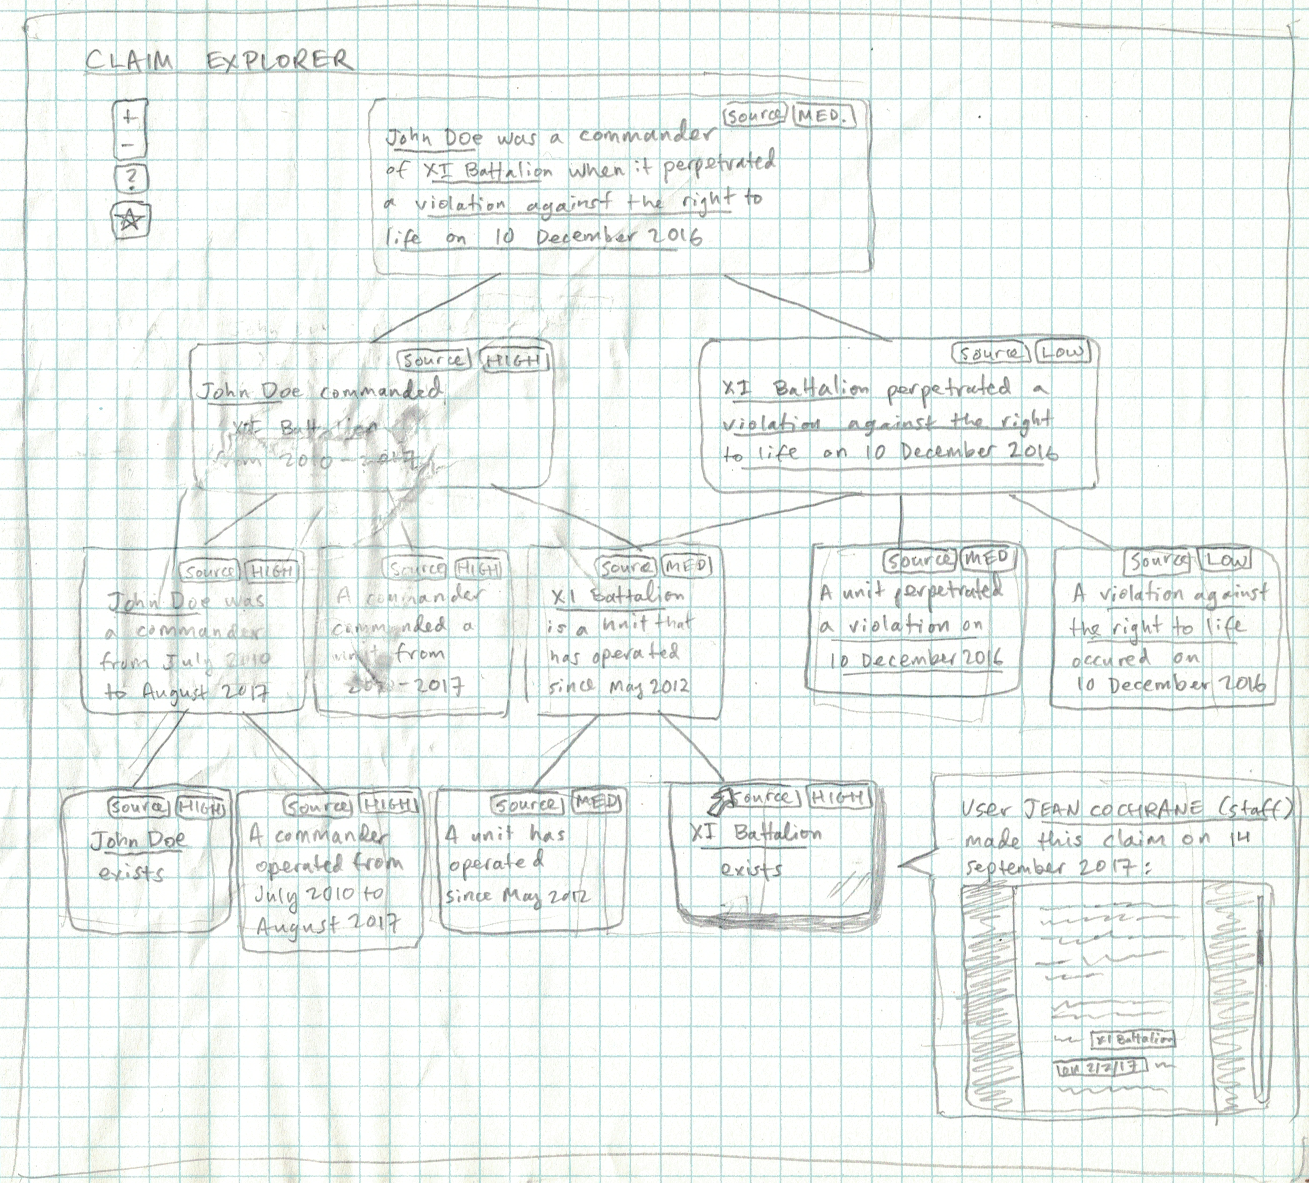 CLAIM EXPLORER
+
-
?
Source MED.
John Doe was a commander
of XI Battalion when it perpetrated
a violation against the right to
life on 10 December 2016
Source HIGH
John Doe commanded
XI Battalion
from 2010-2017
Source LOW
XI Battalion perpetrated a
violation against the right
to life on 10 December 2016
Source HIGH
John Doe was
a commander
from July 2010
to August 2017
Source HIGH
A commander
commanded a
unit from
2010-2017
Source MED
XI Battalion
is a unit that
has operated
since May 2012
Source MED
A unit perpetrated
a violation on
10 December 2016
Source LOW
A violation against
the right to life
occured on
10 December 2016
Source HIGH
John Doe
exists
Source HIGH
A commander
operated from
July 2010 to
August 2017
Source MED
A unit has
operated
since May 2012
Source HIGH
XI Battalion
exists
User JEAN COCHRANE (staff)
made this claim on 14
September 2017:
XI Battalion
on 2/2/17